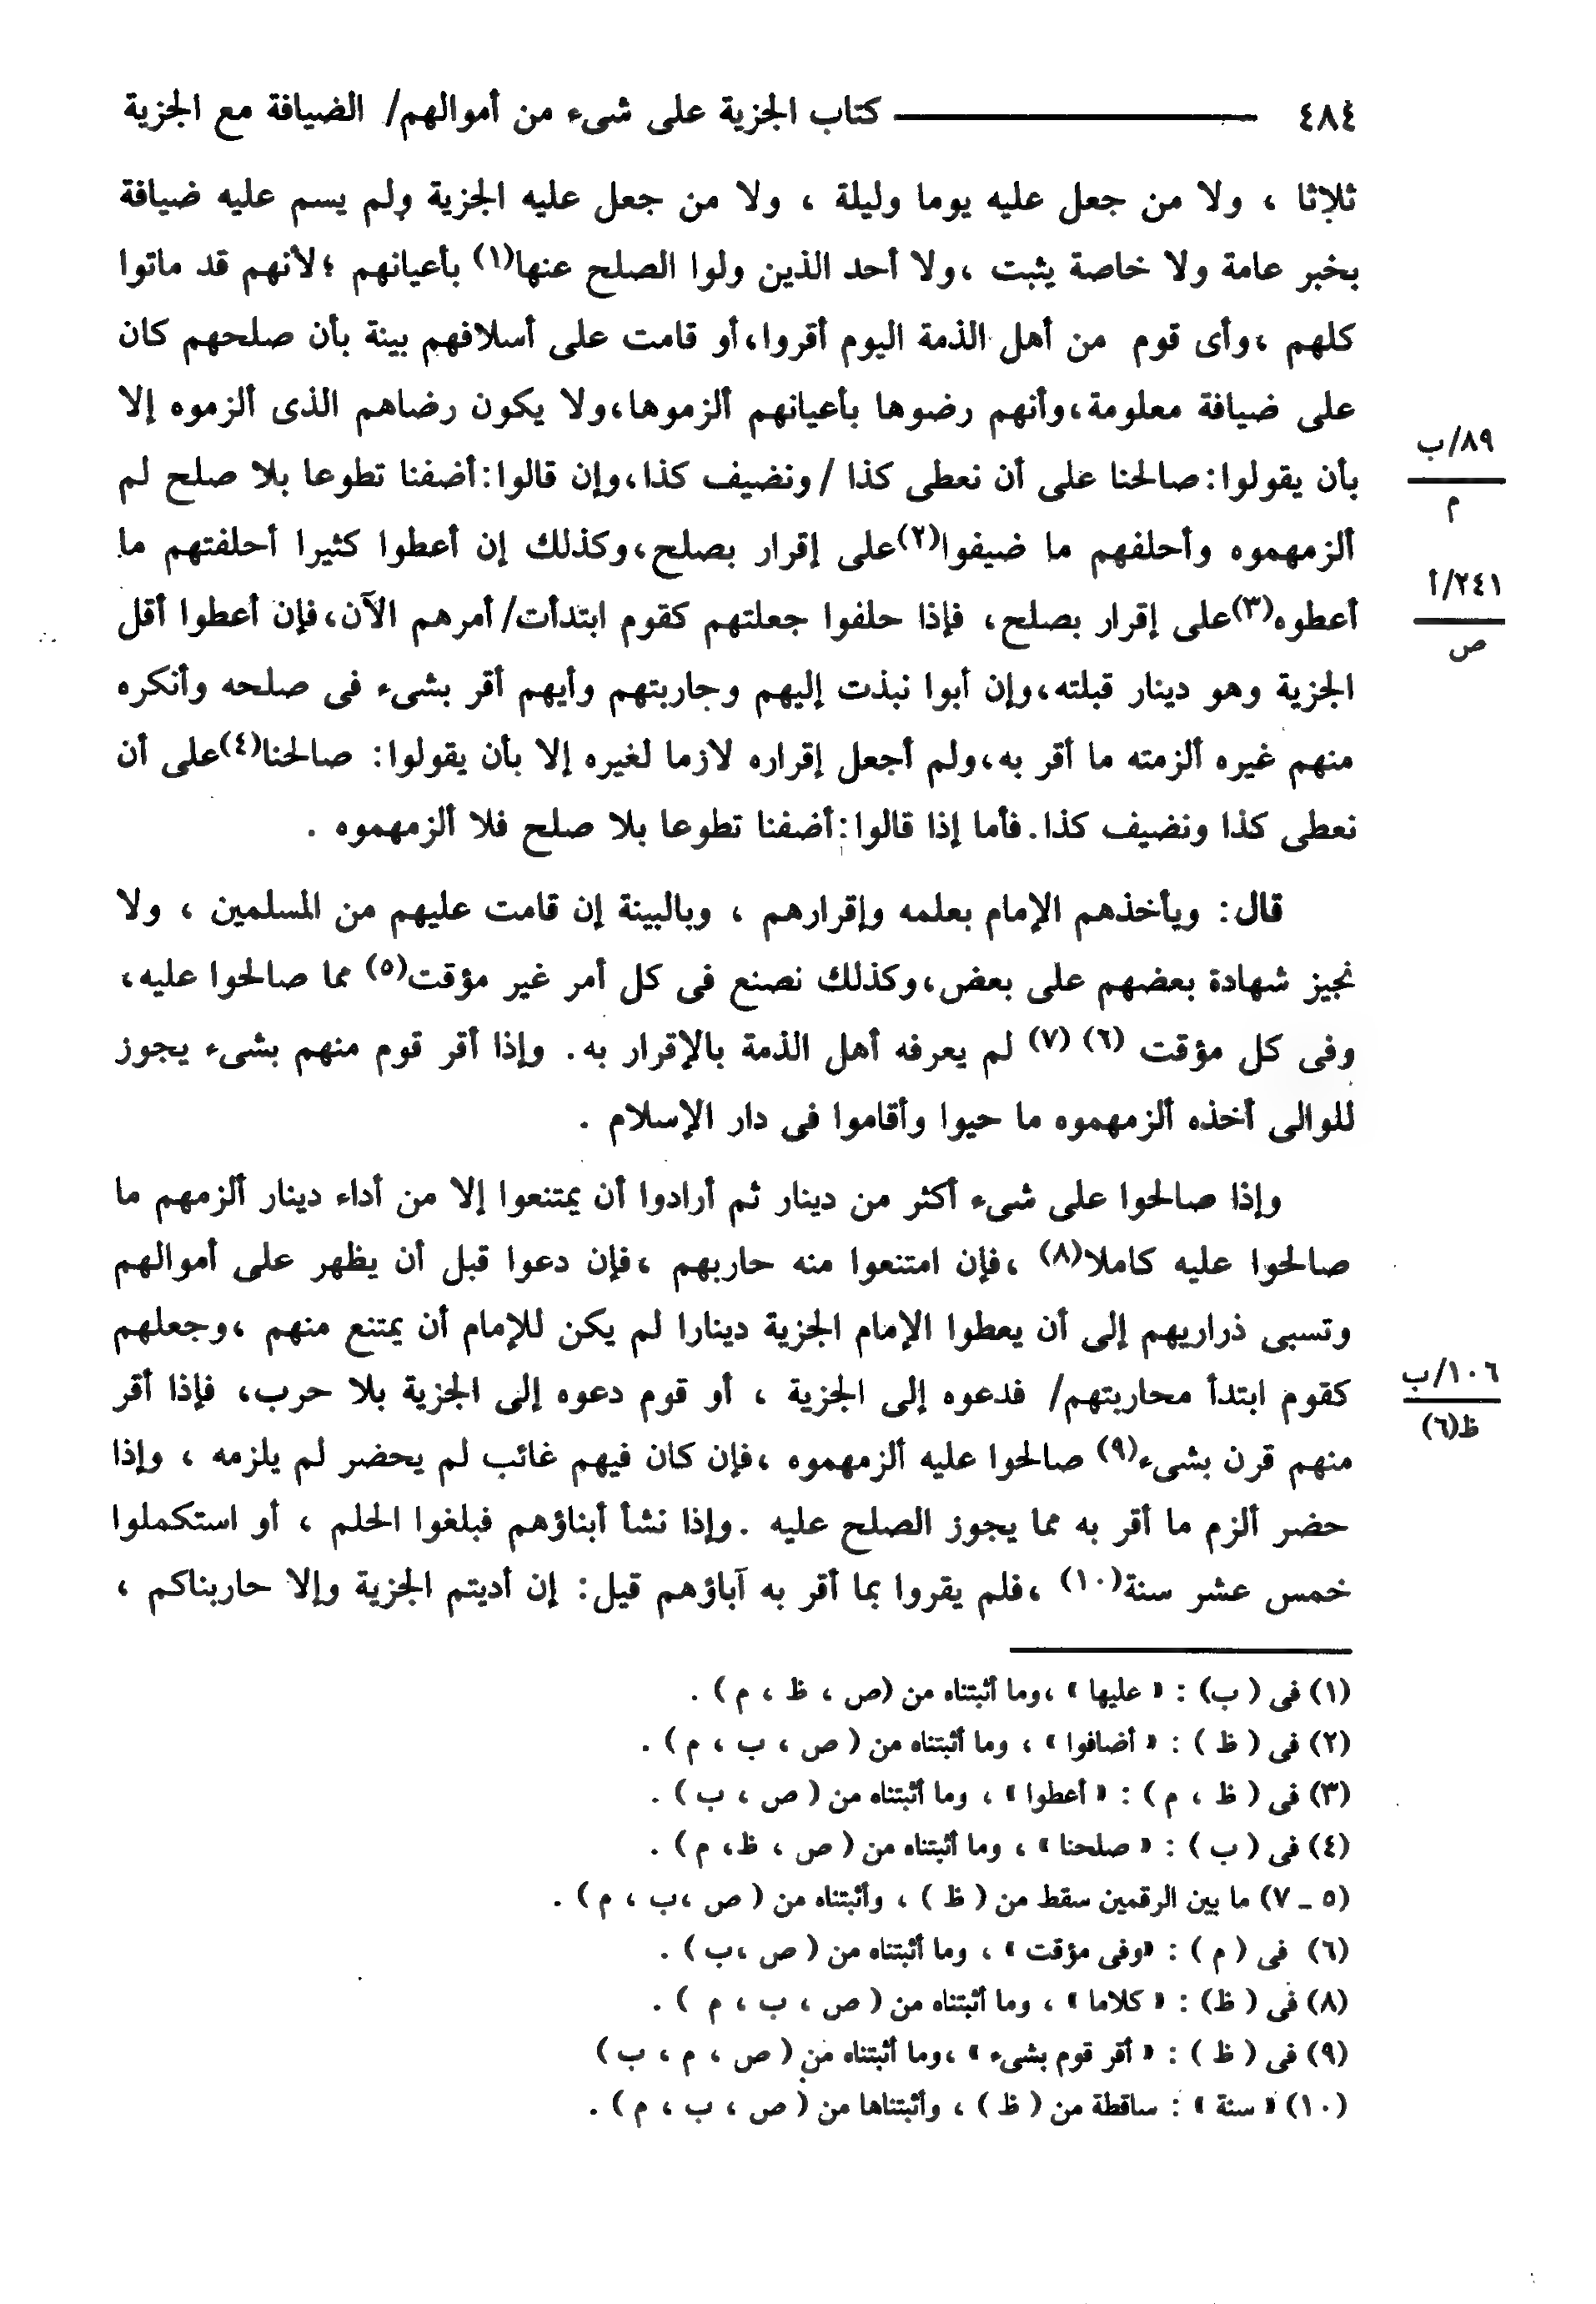 ٤٨٤ كتاب الجزية على شىء من أموالهم/ الضيافة مع الجزية
ثلاثا ، ولا من جعل عليه يوما وليلة ، ولا من جعل عليه الجزية ولم يسم عليه ضيافة
بخبر عامة ولا خاصة يثبت ،ولا أحد الذين ولوا الصلح عنها(١) بأعيانهم ؛لأنهم قد ماتوا
كلهم ،وأى قوم من أهل الذمة اليوم أقروا،أو قامت على أسلافهم بينة بأن صلحهم كان
على ضيافة معلومة،وأنهم رضوها بأعيانهم ألزموها،ولا يكون رضاهم الذى ألزموه إلا
بأن يقولوا:صالحنا على أن نعطى كذا /ونضيف كذا،وإن قالوا:أضفنا تطوعا بلا صلح لم
٨٩/ب
م
ألزمهموه وأحلفهم ما ضيفوا(٢)على إقرار بصلح،وكذلك إن أعطوا كثيرا أحلفتهم ما
أعطوه(٣)على إقرار بصلح، فإذا حلفوا جعلتهم كقوم ابتدأت/أمرهم الآن،فإن أعطوا أقل
٢٤١/أ
ص
الجزية وهو دينار قبلته،وإن أبوا نبذت إليهم وحاربتهم وأيهم أقر بشىء فى صلحه وأنكره
منهم غيره ألزمته ما أقر به،ولم أجعل إقراره لازما لغيره إلا بأن يقولوا: صالحنا(٤)على أن
نعطى كذا ونضيف كذا.فأما إذا قالوا:أضفنا تطوعا بلا صلح فلا ألزمهموه .
قال: ويأخذهم الإمام بعلمه وإقرارهم ، وبالبينة إن قامت عليهم من المسلمين ، ولا
نجيز شهادة بعضهم على بعض،وكذلك نصنع فى كل أمر غير مؤقت(٥) مما صالحوا عليه،
وفى كل مؤقت (٦) (٧) لم يعرفه أهل الذمة بالإقرار به. وإذا أقر قوم منهم بشىء يجوز
للوالى أخذه ألزمهموه ما حيوا وأقاموا فى دار الإسلام .
وإذا صالحوا على شىء أكثر من دينار ثم أرادوا أن يمتنعوا إلا من أداء دينار ألزمهم ما
صالحوا عليه كاملا(٨) ،فإن امتنعوا منه حاربهم ،فإن دعوا قبل أن يظهر على أموالهم
وتسبى ذراريهم إلى أن يعطوا الإمام الجزية دينارا لم يكن للإمام أن يمتنع منهم ،وجعلهم
كقوم ابتدأ محاربتهم/ فدعوه إلى الجزية ، أو قوم دعوه إلى الجزية بلا حرب، فإذا أقر
١٠٦/ب
ظ(٦)
منهم قرن بشىء(٩) صالحوا عليه ألزمهموه ،فإن كان فيهم غائب لم يحضر لم يلزمه ، وإذا
حضر ألزم ما أقر به مما يجوز الصلح عليه .وإذا نشأ أبناؤهم فبلغوا الحلم ، أو استكملوا
خمس عشر سنة(١٠) ،فلم يقروا بما أقر به آباؤهم قيل: إن أديتم الجزية وإلا حاربناكم ،
(١) فى ( ب) : « عليها » ،وما أثبتناه من (ص ، ظ ، م ) .
(٢) فى ( ظ ) : « أضافوا » ، وما أثبتناه من ( ص ، ب ، م ) .
(٣) فى ( ظ ، م ) : « أعطوا » ، وما أثبتناه من ( ص ، ب ) .
(٤) فى ( ب ) : « صلحنا » ، وما أثبتناه من ( ص ، ظ، م ) .
(٥ ــ ٧) ما بين الرقمين سقط من ( ظ ) ، وأثبتناه من ( ص ،ب ، م ) .
(٦) فى ( م ) : «وفى مؤقت » ، وما أثبتناه من ( ص ،ب ) .
(٨) فى ( ظ) : « كلاما » ، وما أثبتناه من ( ص ، ب ، م ) .
(٩) فى ( ظ ) : « أقر قوم بشىء » ،وما أثبتناه من ( ص ، م ، ب )
(١٠) « سنة » : ساقطة من ( ظ ) ، وأثبتناها من ( ص ، ب ، م ) .